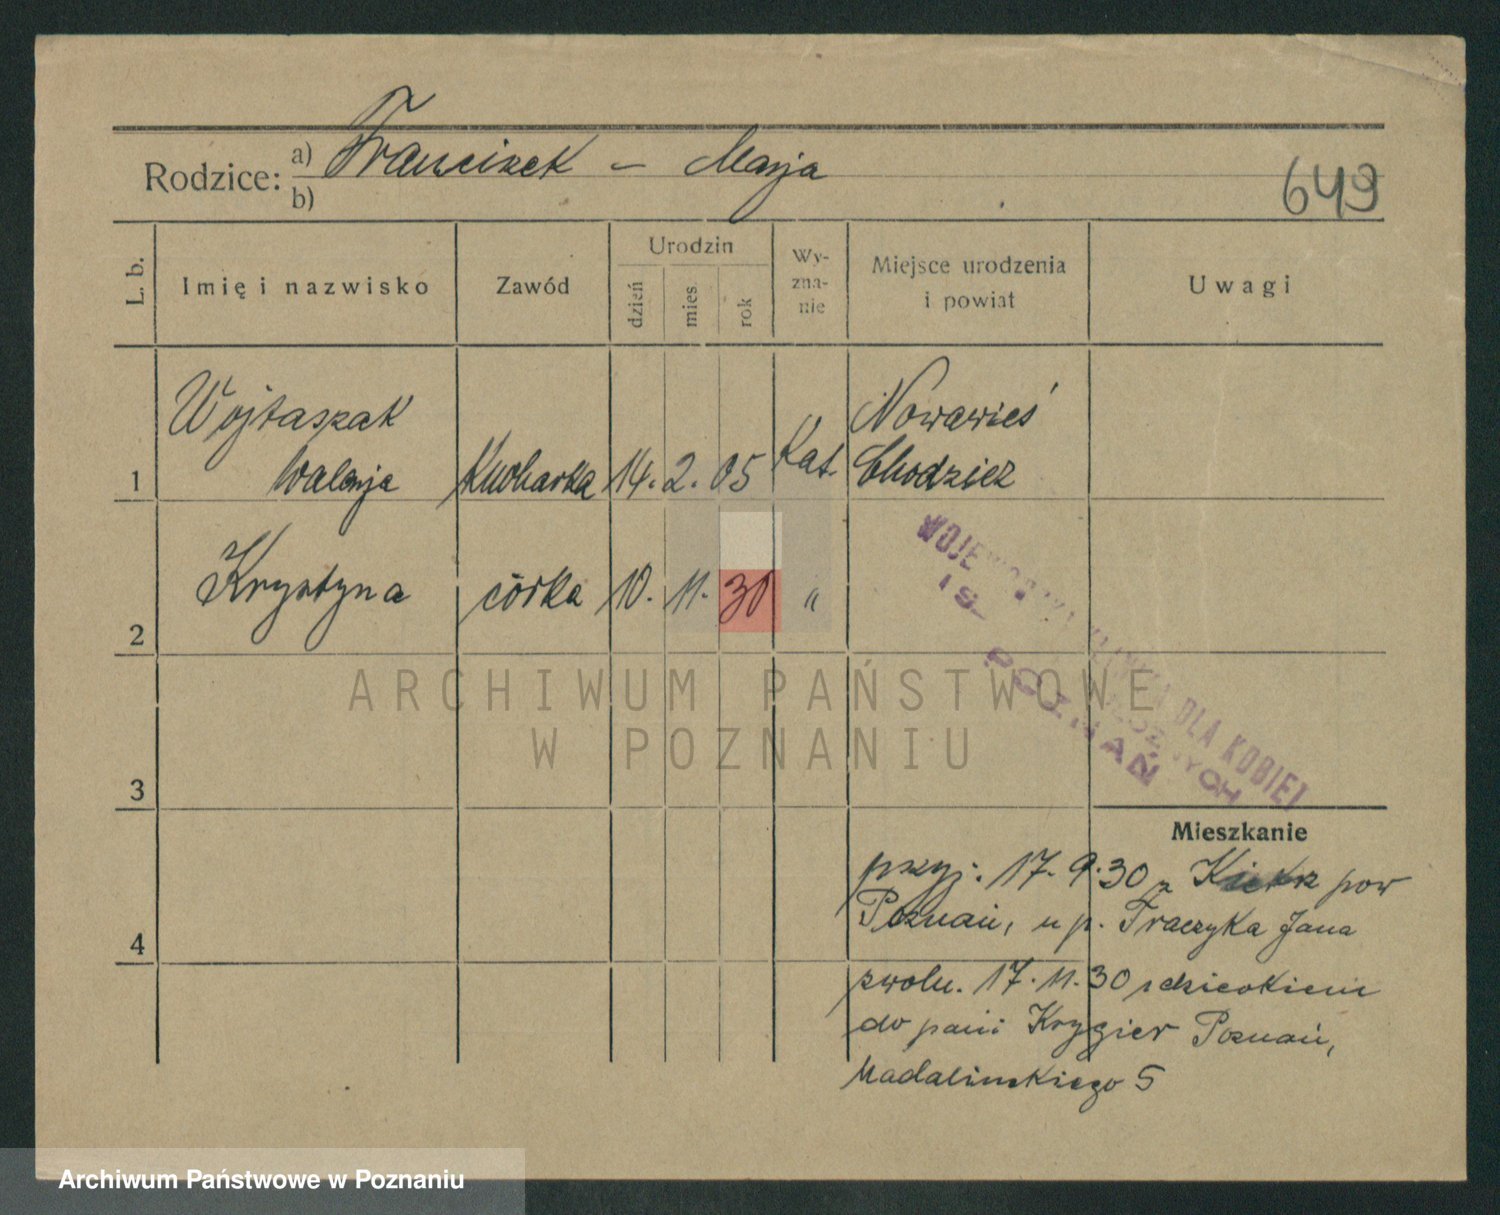 Rodzice: a) Franciszek – Marja
b)
649
L. b. Imię i nazwisko Zawód Urodzin dzień mies. rok Wy-zna-nie Miejsce urodzenia i powiat Uwagi
Wojtaszak Nowawieś
1 Walerja Kucharka 14. 2. 05 Kat. Chodzież
2 Krystyna córka 10. 11. 30 "
WOJEWÓDZKA KLINIKA DLA KOBIET
POZNAŃ
3
Mieszkanie
4
przyj. 17. 9. 30 z Kiekrz pow
Poznań, u p. Traczyka Jana
zwoln. 17. 11. 30 z dzieckiem
do pani Krygier Poznań,
Madalinskiego 5
ARCHIWUM PAŃSTWOWE
W POZNANIU
Archiwum Państwowe w Poznaniu